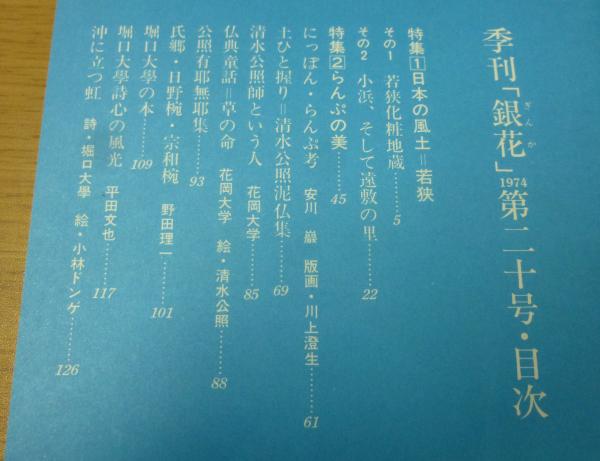 季刊「銀花」1974第二十号・目次
ぎんか
特集1日本の風土=若狭
その1 若狭化粧地蔵………5
その2 小浜、そして遠敷の里………22
特集2らんぷの美………45
にっぽん・らんぷ考 安川巖 版画・川上澄生………61
土ひと握り=清水公照泥仏集………69
清水公照師という人 花岡大学………85
仏典童話=草の命 花岡大学 絵・清水公照………88
公照有耶無耶集………93
氏郷・日野椀・宗和椀 野田理一………101
堀口大學の本………109
堀口大學詩心の風光 平田文也………117
沖に立つ虹 詩・堀口大學 絵・小林ドンゲ………126